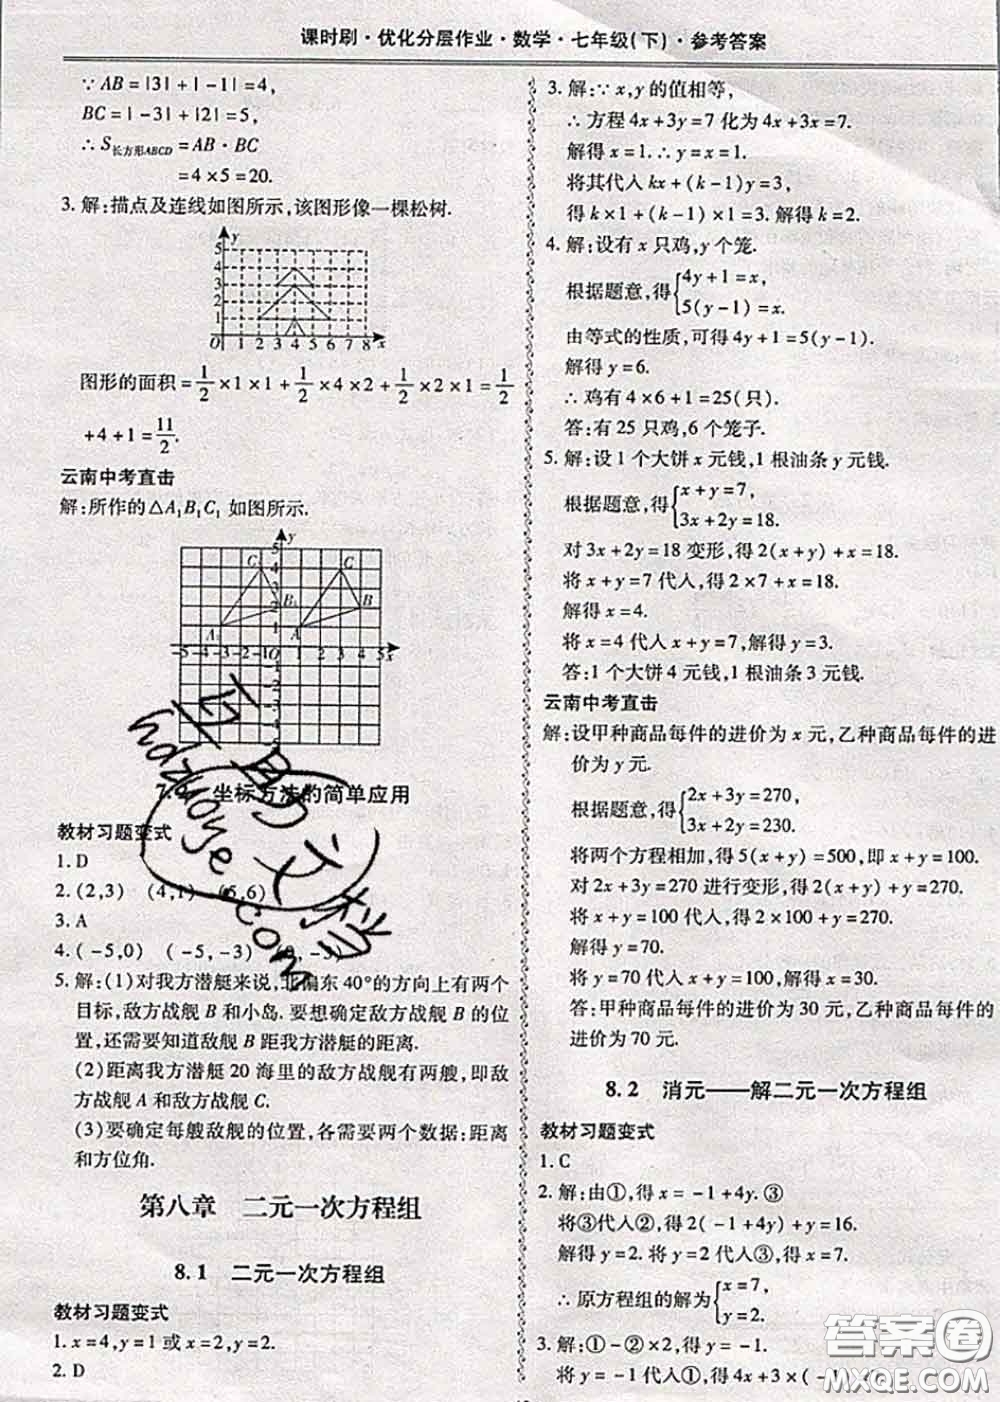 课时刷·优化分层作业·数学·七年级(下)·参考答案
∵AB=|3|+|-1|=4,
BC=|-3|+|2|=5,
∴S长方形ABCD=AB·BC
=4×5=20.
3.解:描点及连线如图所示,该图形像一棵松树.
y
5
4
3
2
1
O 1 2 3 4 5 6 7 8 x
图形的面积=1/2×1×1+1/2×4×2+1/2×2×1=1/2
+4+1=11/2.
云南中考直击
解:所作的△A₁B₁C₁如图所示.
5 y
C₁ 4 C
3
B₁ 2 B
A₁ 1 A
-5 -4 -3 -2 -1 O 1 2 3 4 5 x
坐标方法的简单应用
教材习题变式
1.D
2.(2,3) (4,1) (5,6)
3.A
4.(-5,0) (-5,-3) (0,-3)
5.解:(1)对我方潜艇来说,北偏东40°的方向上有两个
目标,敌方战舰B和小岛.要想确定敌方战舰B的位
置,还需要知道敌方战舰B距我方潜艇的距离.
(2)距离我方潜艇20海里的敌方战舰有两艘,即敌方
战舰A和敌方战舰C.
(3)要确定每艘敌舰的位置,各需要两个数据:距离
和方位角.
第八章 二元一次方程组
8.1 二元一次方程组
教材习题变式
1.x=4,y=1或x=2,y=2.
2.D
3.解:∵x,y的值相等,
∴方程4x+3y=7化为4x+3x=7.
解得x=1.∴y=x=1.
将其代入kx+(k-1)y=3,
得k×1+(k-1)×1=3.解得k=2.
4.解:设有x只鸡,y个笼.
根据题意,得{4y+1=x,
5(y-1)=x.
由等式的性质,可得4y+1=5(y-1).
解得y=6.
∴鸡有4×6+1=25(只).
答:有25只鸡,6个笼子.
5.解:设1个大饼x元钱,1根油条y元钱.
根据题意,得{x+y=7,
3x+2y=18.
对3x+2y=18变形,得2(x+y)+x=18.
将x+y=7代入,得2×7+x=18.
解得x=4.
将x=4代入x+y=7,解得y=3.
答:1个大饼4元钱,1根油条3元钱.
云南中考直击
解:设甲种商品每件的进价为x元,乙种商品每件的进
价为y元.
根据题意,得{2x+3y=270,
3x+2y=230.
将两个方程相加,得5(x+y)=500,即x+y=100.
对2x+3y=270进行变形,得2(x+y)+y=270.
将x+y=100代入,得2×100+y=270.
解得y=70.
将y=70代入x+y=100,得x=30.
答:甲种商品每件的进价为30元,乙种商品每件的
进价为70元.
8.2 消元——解二元一次方程组
教材习题变式
1.C
2.解:由①,得x=-1+4y.③
将③代入②,得2(-1+4y)+y=16.
解得y=2.将y=2代入③,得x=7.
∴原方程组的解为{x=7,
y=2.
3.解:①-②×2,得y=-1.
将y=-1代入①,得4x+3×(-1)
hdzuoye.com
答案圈
MXQE.COM